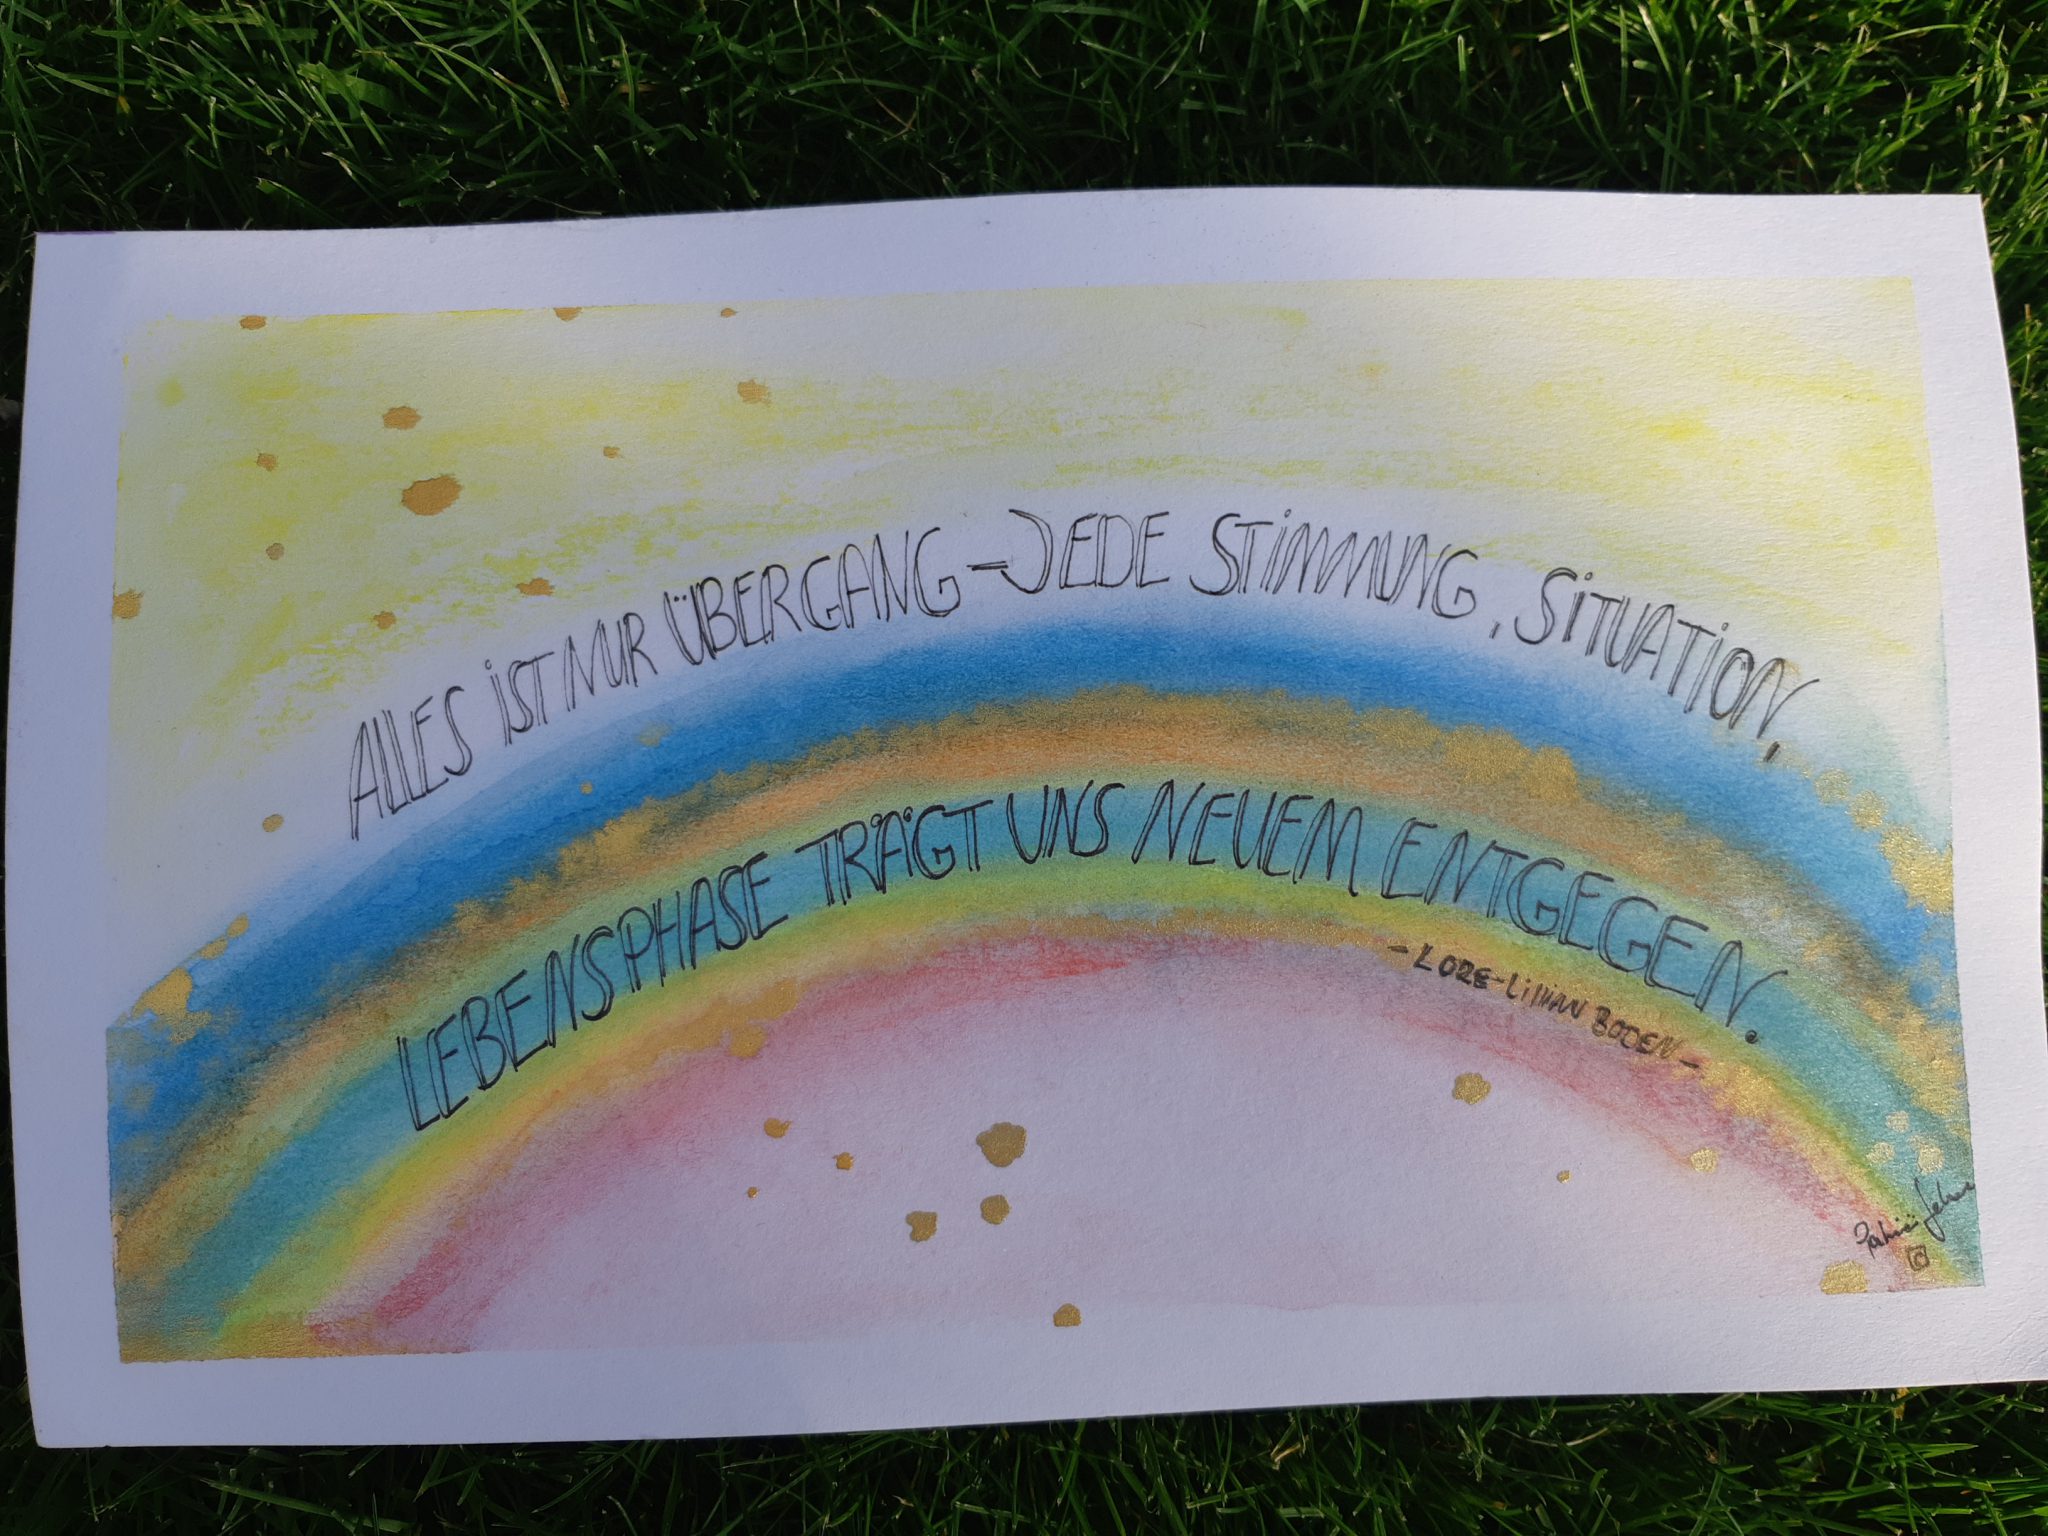 ALLES iST NUR ÜBERGANG – JEDE STiMMUNG, SiTUATiON,
LEBENSPHASE TRÄGT UNS NEUEM ENTGEGEN.
- LORE-LiLLiAN BODEN -
©